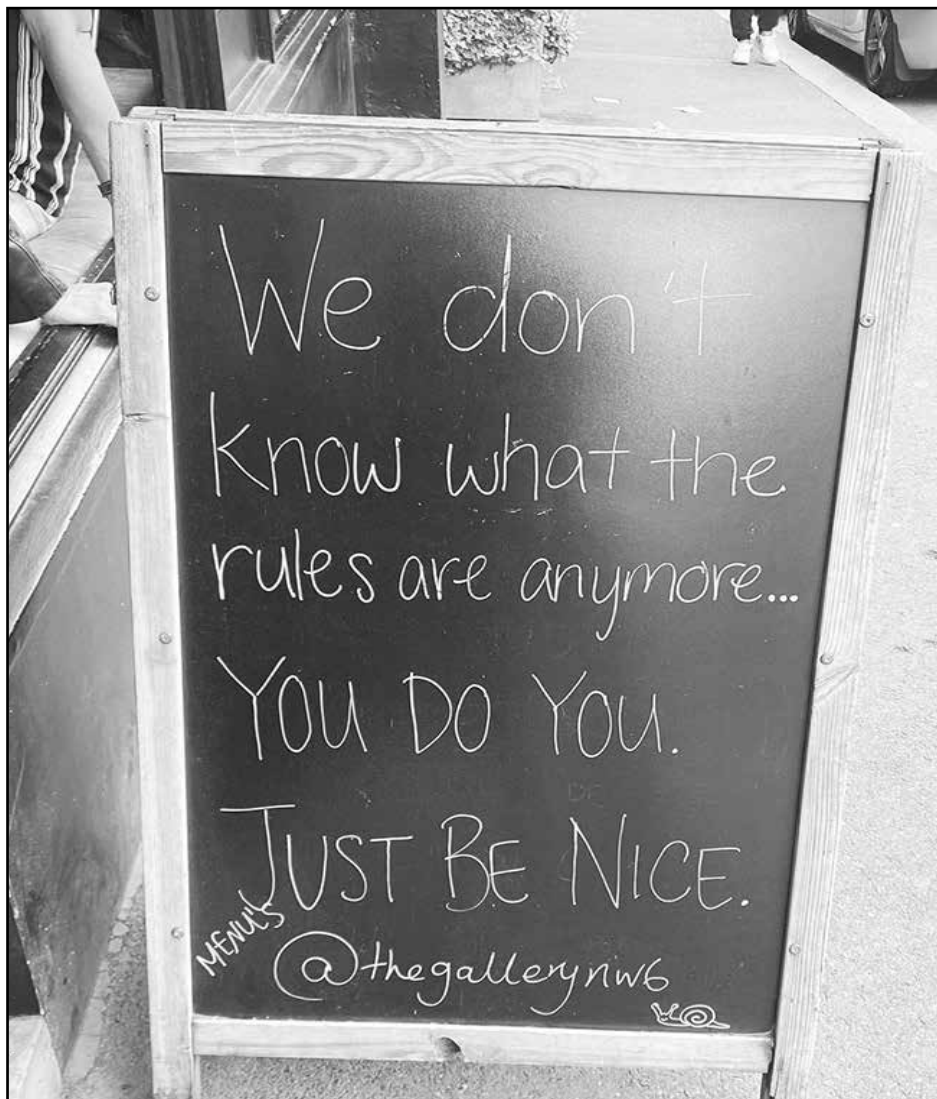 We don't
know what the
rules are anymore...
YOU DO YOU.
JUST BE NICE.
MENU'S
@thegallerynw6